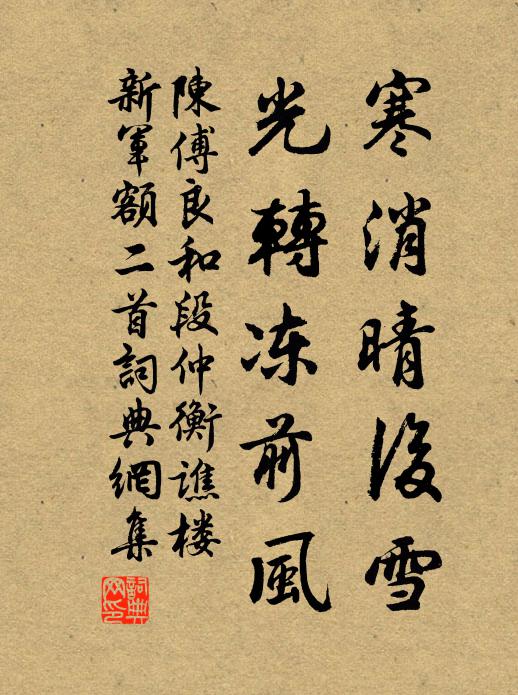 寒消晴後雪
光轉冻前風
陳傅良和段仲衡譙楼
新軍額二首詞典網集
詞典網印